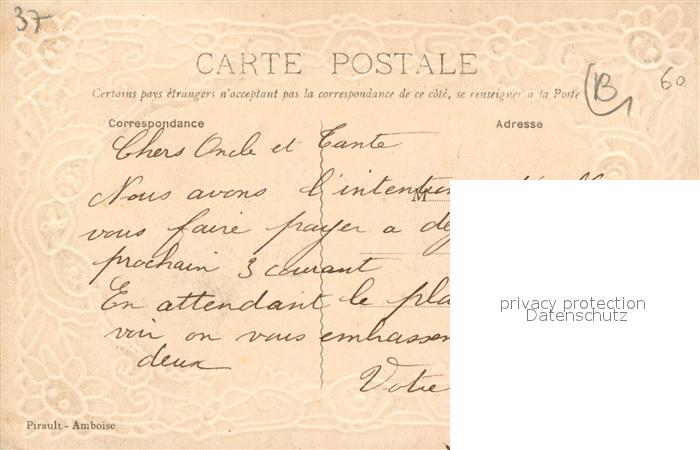 37
CARTE POSTALE
Certains pays étrangers n'acceptant pas la correspondance de ce côté, se renseigner à la Poste
B
60
Correspondance
Adresse
Chers Oncle et Tante
Nous avons l'intention
M
vous faire payer a
prochain 3 courant
En attendant le
voir on vous embrasse
deux
Votre
Pirault - Amboise
privacy protection
Datenschutz